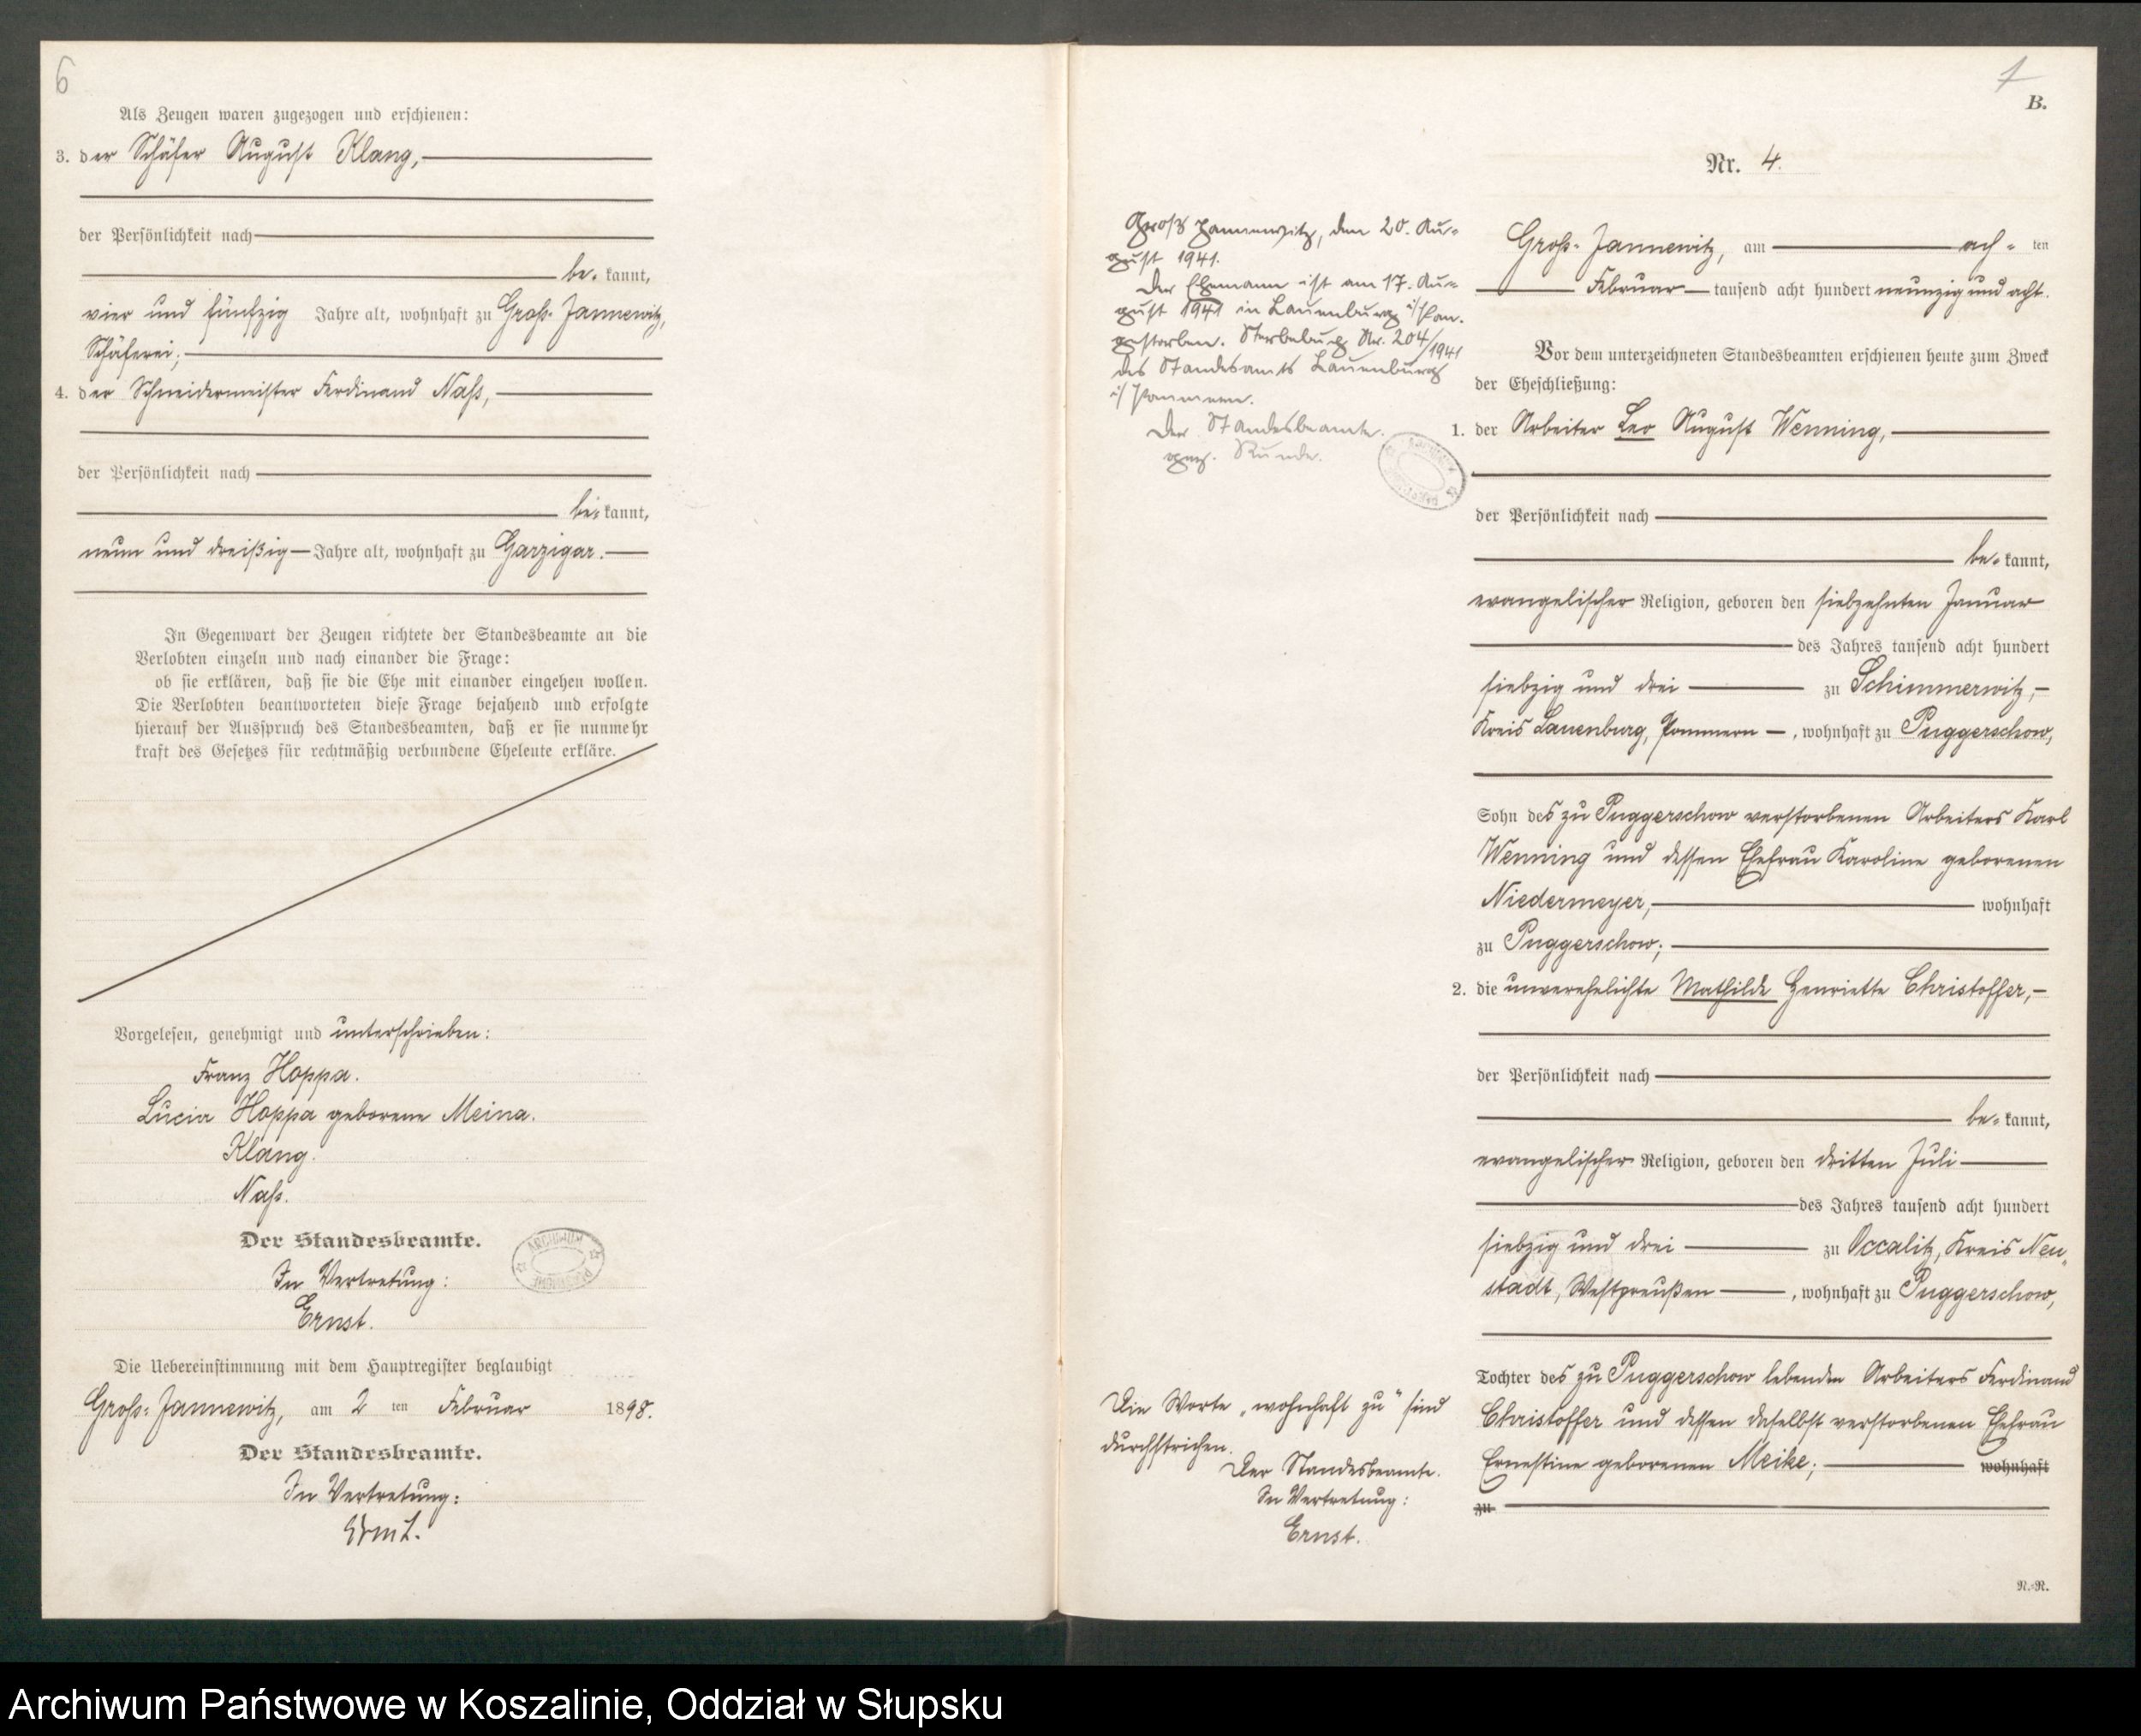 6
Als Zeugen waren zugezogen und erschienen:
3. der Schäfer August Klang,
der Persönlichkeit nach
be= kannt,
vier und fünfzig Jahre alt, wohnhaft zu Groß-Jannewitz,
Schäferei;
4. der Schneidermeister Ferdinand Naß,
der Persönlichkeit nach
be= kannt,
neun und dreißig Jahre alt, wohnhaft zu Garzigar.
In Gegenwart der Zeugen richtete der Standesbeamte an die
Verlobten einzeln und nach einander die Frage:
ob sie erklären, daß sie die Ehe mit einander eingehen wollen.
Die Verlobten beantworteten diese Frage bejahend und erfolgte
hierauf der Ausspruch des Standesbeamten, daß er sie nunmehr
kraft des Gesetzes für rechtmäßig verbundene Eheleute erkläre.
Vorgelesen, genehmigt und unterschrieben:
Franz Hoppa.
Lucia Hoppa geborene Meina.
Klang.
Naß.
Der Standesbeamte.
In Vertretung:
Ernst.
ARCHIWUM
Die Uebereinstimmung mit dem Hauptregister beglaubigt
Groß-Jannewitz, am 2 ten Februar 1898.
Der Standesbeamte.
In Vertretung:
Ernst.
B.
Nr. 4.
Groß Jannewitz, den 20. Au=
gust 1941.
Der Ehemann ist am 17. Au=
gust 1941 in Lauenburg i/Pom.
gestorben. Sterbebuch Nr. 204/1941
des Standesamts Lauenburg
i/Pommern.
Der Standesbeamte.
gez. Runde.
Groß-Jannewitz, am ach= ten
Februar tausend acht hundert neunzig und acht.
Vor dem unterzeichneten Standesbeamten erschienen heute zum Zweck
der Eheschließung:
1. der Arbeiter Leo August Wenning,
der Persönlichkeit nach
be= kannt,
evangelischer Religion, geboren den siebzehnten Januar
des Jahres tausend acht hundert
siebzig und drei zu Schimmerwitz,
Kreis Lauenburg, Pommern, wohnhaft zu Puggerschow,
Sohn des zu Puggerschow verstorbenen Arbeiters Karl
Wenning und dessen Ehefrau Karoline geborenen
Niedermeyer, wohnhaft
zu Puggerschow;
2. die unverehelichte Mathilde Henriette Christoffer,
der Persönlichkeit nach
be= kannt,
evangelischer Religion, geboren den dritten Juli
des Jahres tausend acht hundert
siebzig und drei zu Occalitz, Kreis Neu=
stadt, Westpreußen, wohnhaft zu Puggerschow,
Tochter des zu Puggerschow lebenden Arbeiters Ferdinand
Christoffer und dessen daselbst verstorbenen Ehefrau
Ernestine geborenen Meike; wohnhaft
zu
Die Worte „wohnhaft zu" sind
durchstrichen.
Der Standesbeamte.
In Vertretung:
Ernst.
N.-N.
Archiwum Państwowe w Koszalinie, Oddział w Słupsku